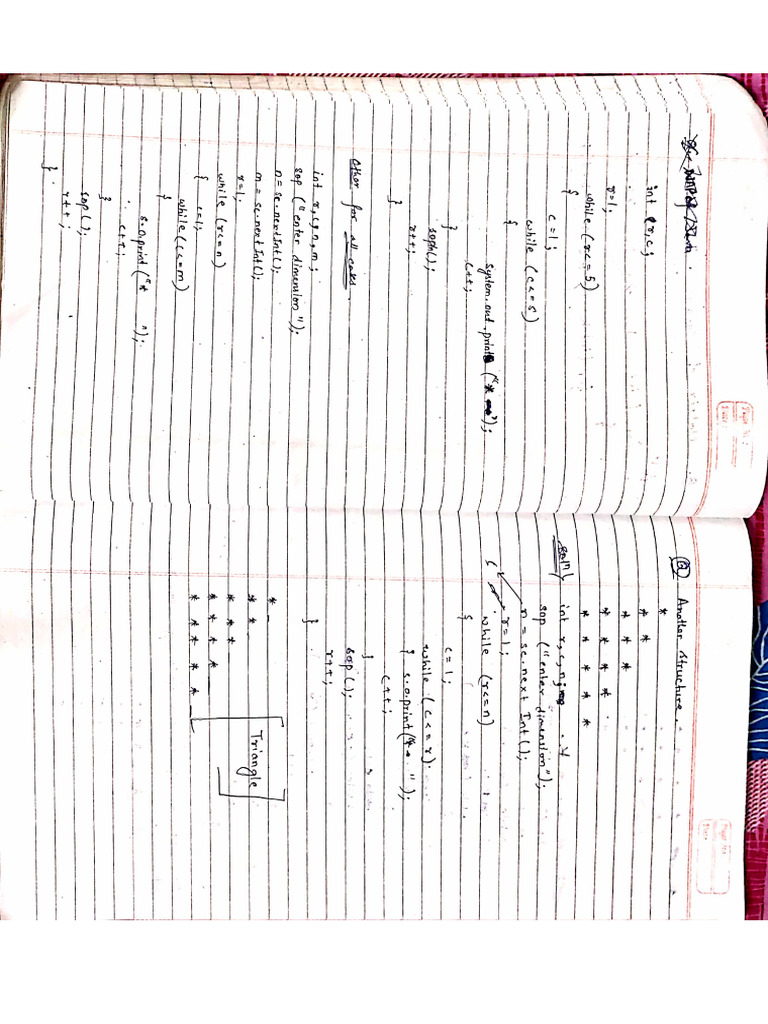 int r,c;
r=1;
while (r<=5)
{
c=1;
while (c<=5)
{
System.out.print ("* ");
c++;
}
sopln();
r++;
}
Other for all cases.
int r,c,n,m;
sop ("enter dimension");
n=sc.nextInt();
m=sc.nextInt();
r=1.
while (r<=n)
{ c=1;
while (c<=m)
{
s.o.print("* ");
c++;
}
sop();
r++;
}
Q Another Structure.
*
* *
* * *
* * * *
* * * * *
Soln int r,c,n;
sop ("enter dimension");
n = sc.next Int();
r=1;
while (r<=n)
{
c=1;
while (c<=r).
{ s.o.print("* ");
c++;
}
sop();
r++;
}
*
* *
* * *
* * * *
* * * * *
Triangle